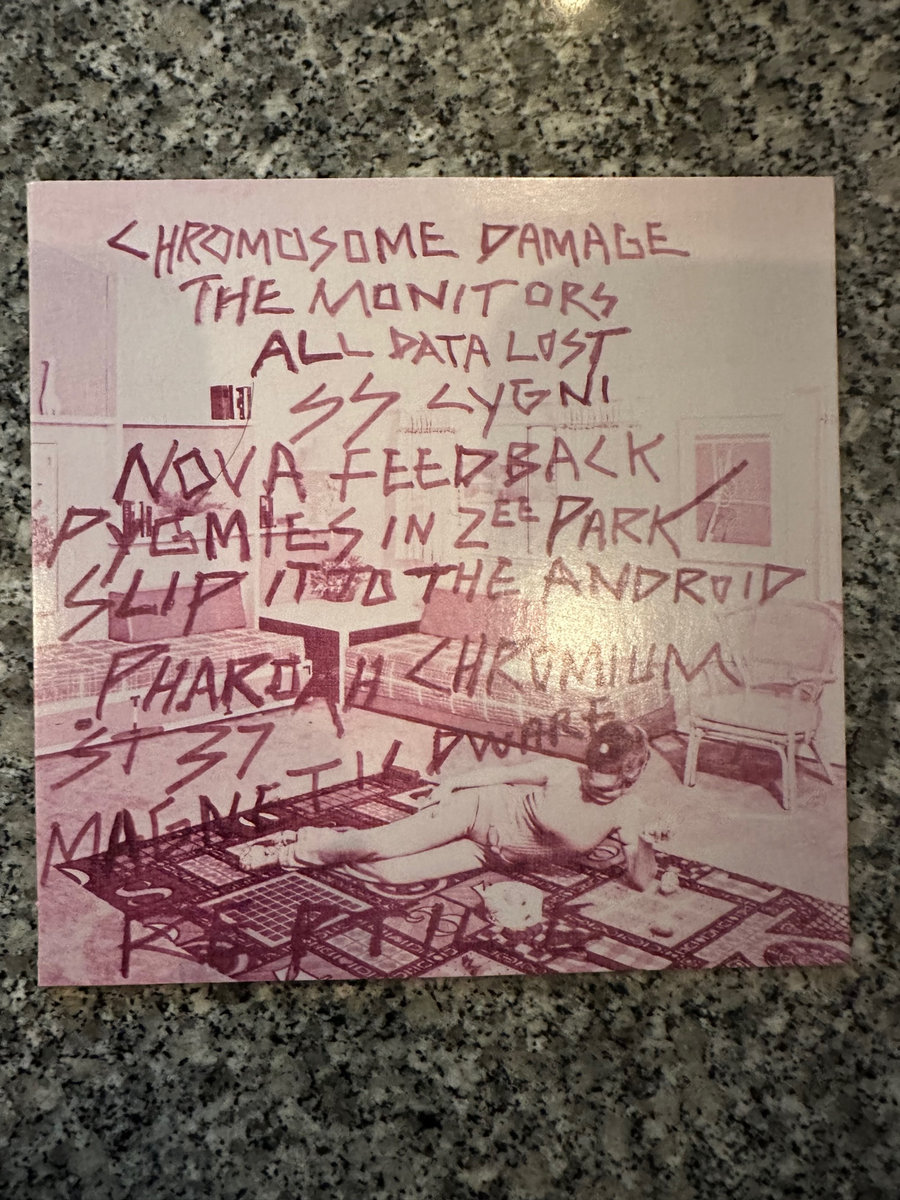 CHROMOSOME DAMAGE
THE MONITORS
ALL DATA LOST
SS CYGNI
NOVA FEEDBACK
PYGMIES IN ZEE PARK
SLIP IT TO THE ANDROID
PHAROAH CHROMIUM
ST 37
MAGNETIC DWARF
REPTILE